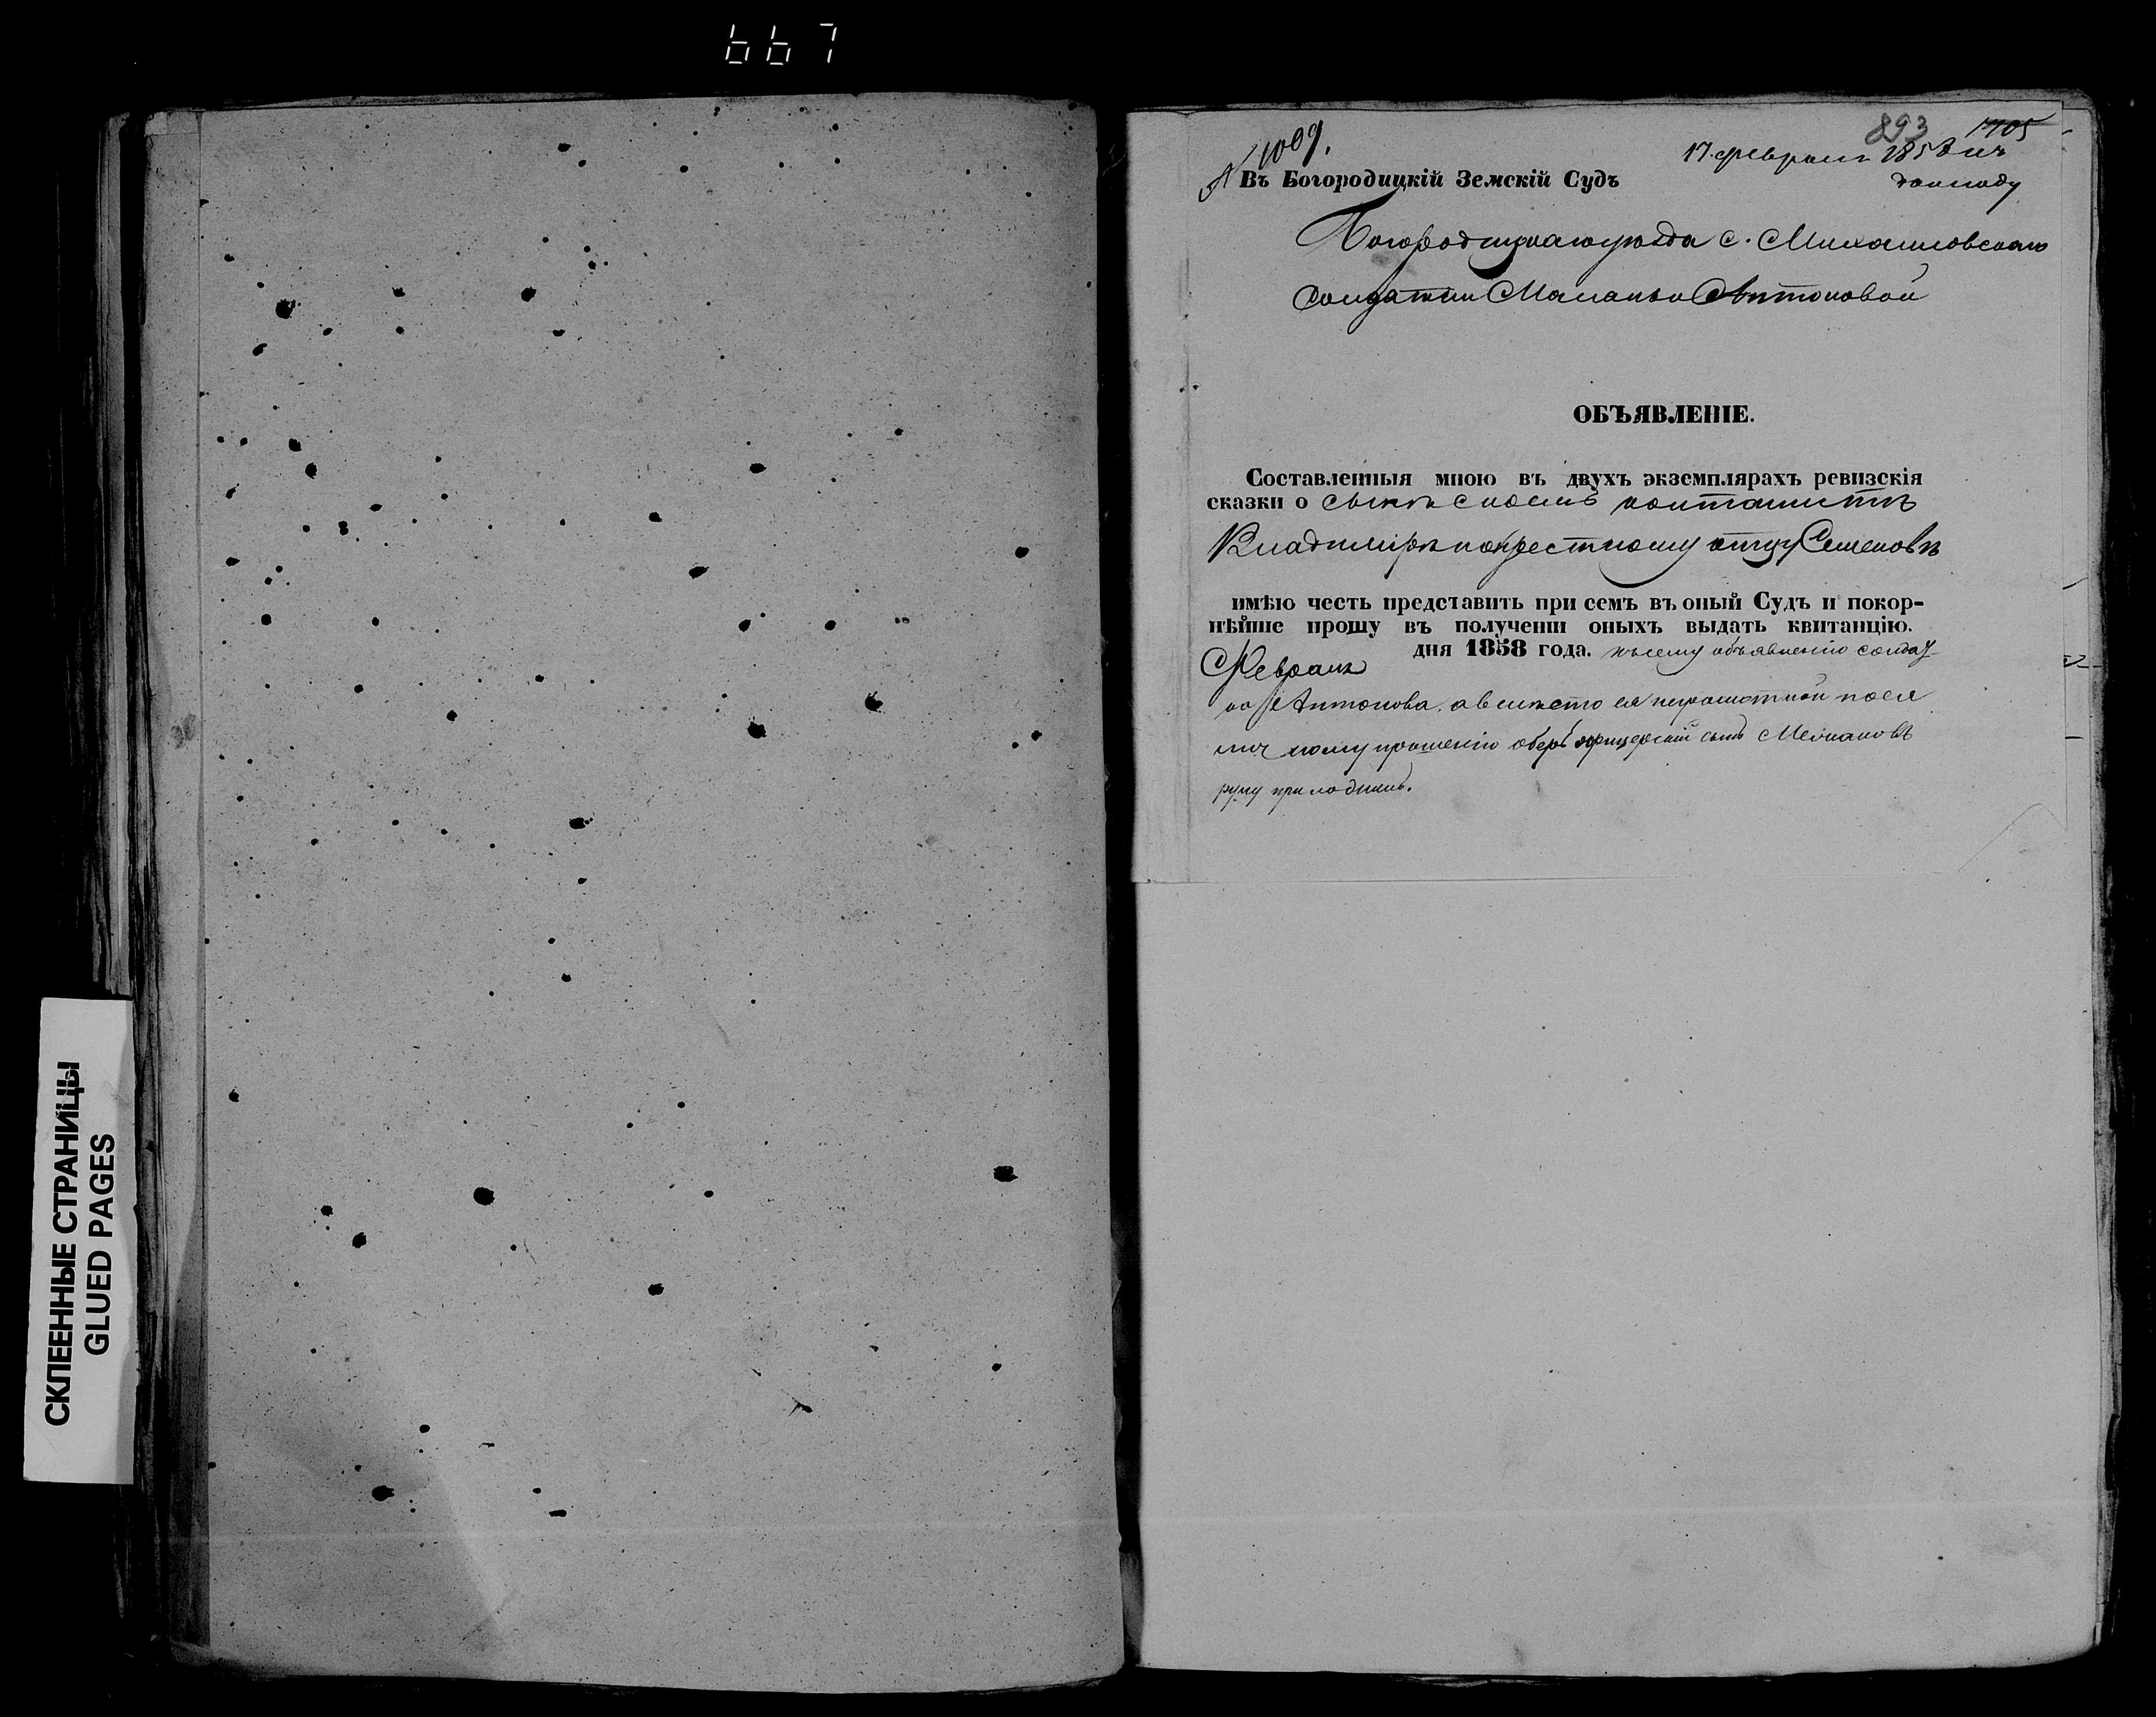 667
СКЛЕЕННЫЕ СТРАНИЦЫ
GLUED PAGES
893 1705
№ 1009.
17 февраля 1858 къ
докладу
Въ Богородицкій Земскій Судъ
Богородицкаго уѣзда с. Михайловскаго
Солдатки Маланьи Антоновой
ОБЪЯВЛЕНІЕ.
Составленныя мною въ двухъ экземплярахъ ревизскія
сказки о сынѣ своемъ кантонистѣ
Владимірѣ по крестному отцу Семеновѣ
имѣю честь представить при семъ въ оный Судъ и покор-
нѣйше прошу въ полученіи оныхъ выдать квитанцію.
Февраля дня 1858 года. къ сему объявленію солдат-
ка Антонова, а вмѣсто ея неграмотной по ея
личному прошенію оберъ офицерскій сынъ
руку приложилъ.